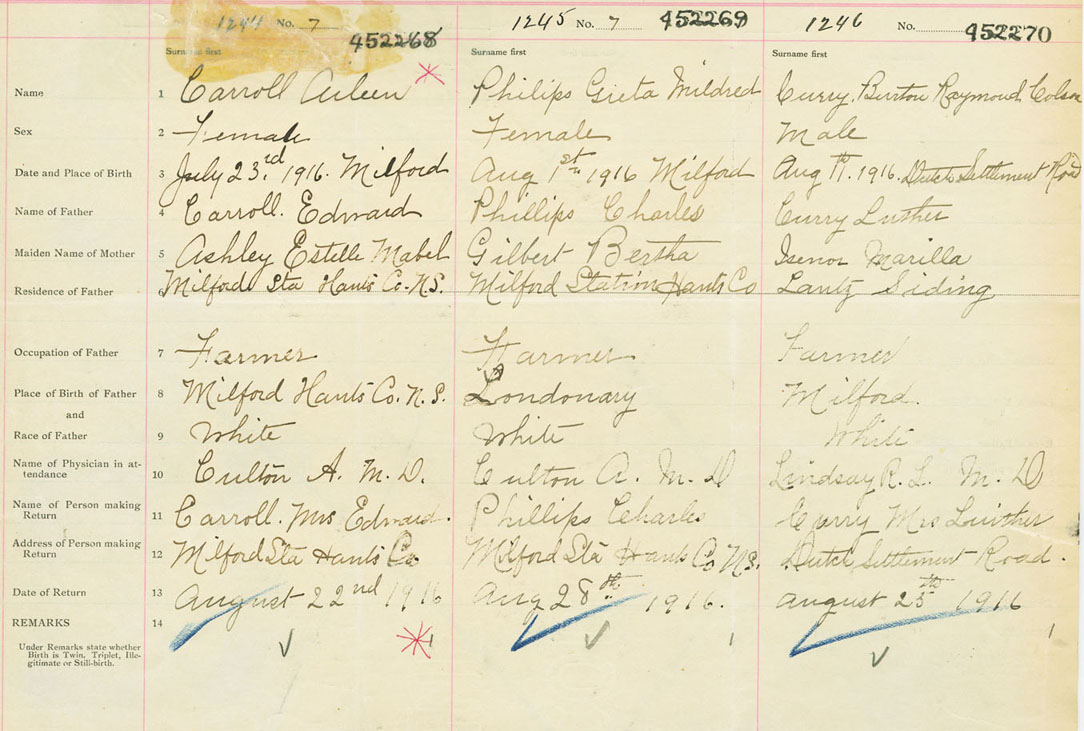 1244 No. 7 452268 1245 No. 7 452269 1246 No. 452270
Surname first Surname first Surname first
Name 1 Carroll Aileen Philips Greta Mildred Curry, Burton Raymond Colson
Sex 2 Female Female Male
Date and Place of Birth 3 July 23rd 1916. Milford Aug 1st 1916 Milford Aug 1916. Dutch Settlement Road
Name of Father 4 Carroll. Edward Phillips Charles Curry Luther
Maiden Name of Mother 5 Ashley Estelle Mabel Gilbert Bertha Isenor Marilla
Residence of Father Milford Sta Hants Co. N.S. Milford Station Hants Co Lantz Siding
Occupation of Father 7 Farmer Farmer Farmer
Place of Birth of Father 8 Milford Hants Co. N.S. Londonary Milford.
and
Race of Father 9 White White White
Name of Physician in at-
tendance 10 Culton A. M. D. Culton A. M. D Lindsay R. L. M. D
Name of Person making
Return 11 Carroll. Mrs Edward. Phillips Charles Curry Mrs Luther
Address of Person making
Return 12 Milford Sta Hants Co Milford Sta Hants Co N.S. Dutch Settlement Road.
Date of Return 13 August 22nd 1916 Aug 28th 1916. August 25th 1916
REMARKS 14
Under Remarks state whether
Birth is Twin, Triplet, Ille-
gitimate or Still-birth.
1 1 1